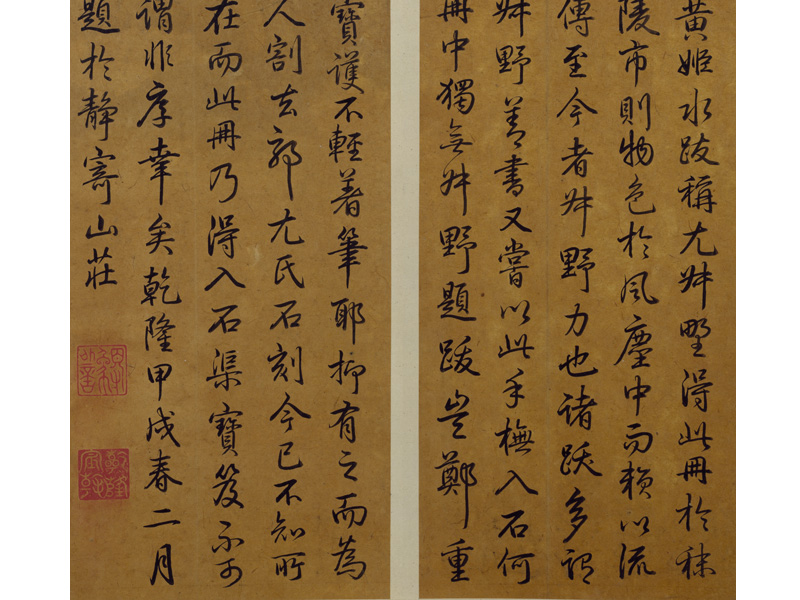 黃姬水跋稱尤叔野得此冊於秣
陵市則物色於風塵中而賴以流
傳至今者叔野力也諸跋多謂
叔野善書又嘗以此手橅入石何
冊中獨無叔野題跋豈鄭重
寶護不輕著筆耶抑有之而為
人割去郭尤氏石刻今已不知所
在而此冊乃得入石渠寶笈不可
謂非厚幸矣乾隆甲戌春二月
題於靜寄山莊
乾隆